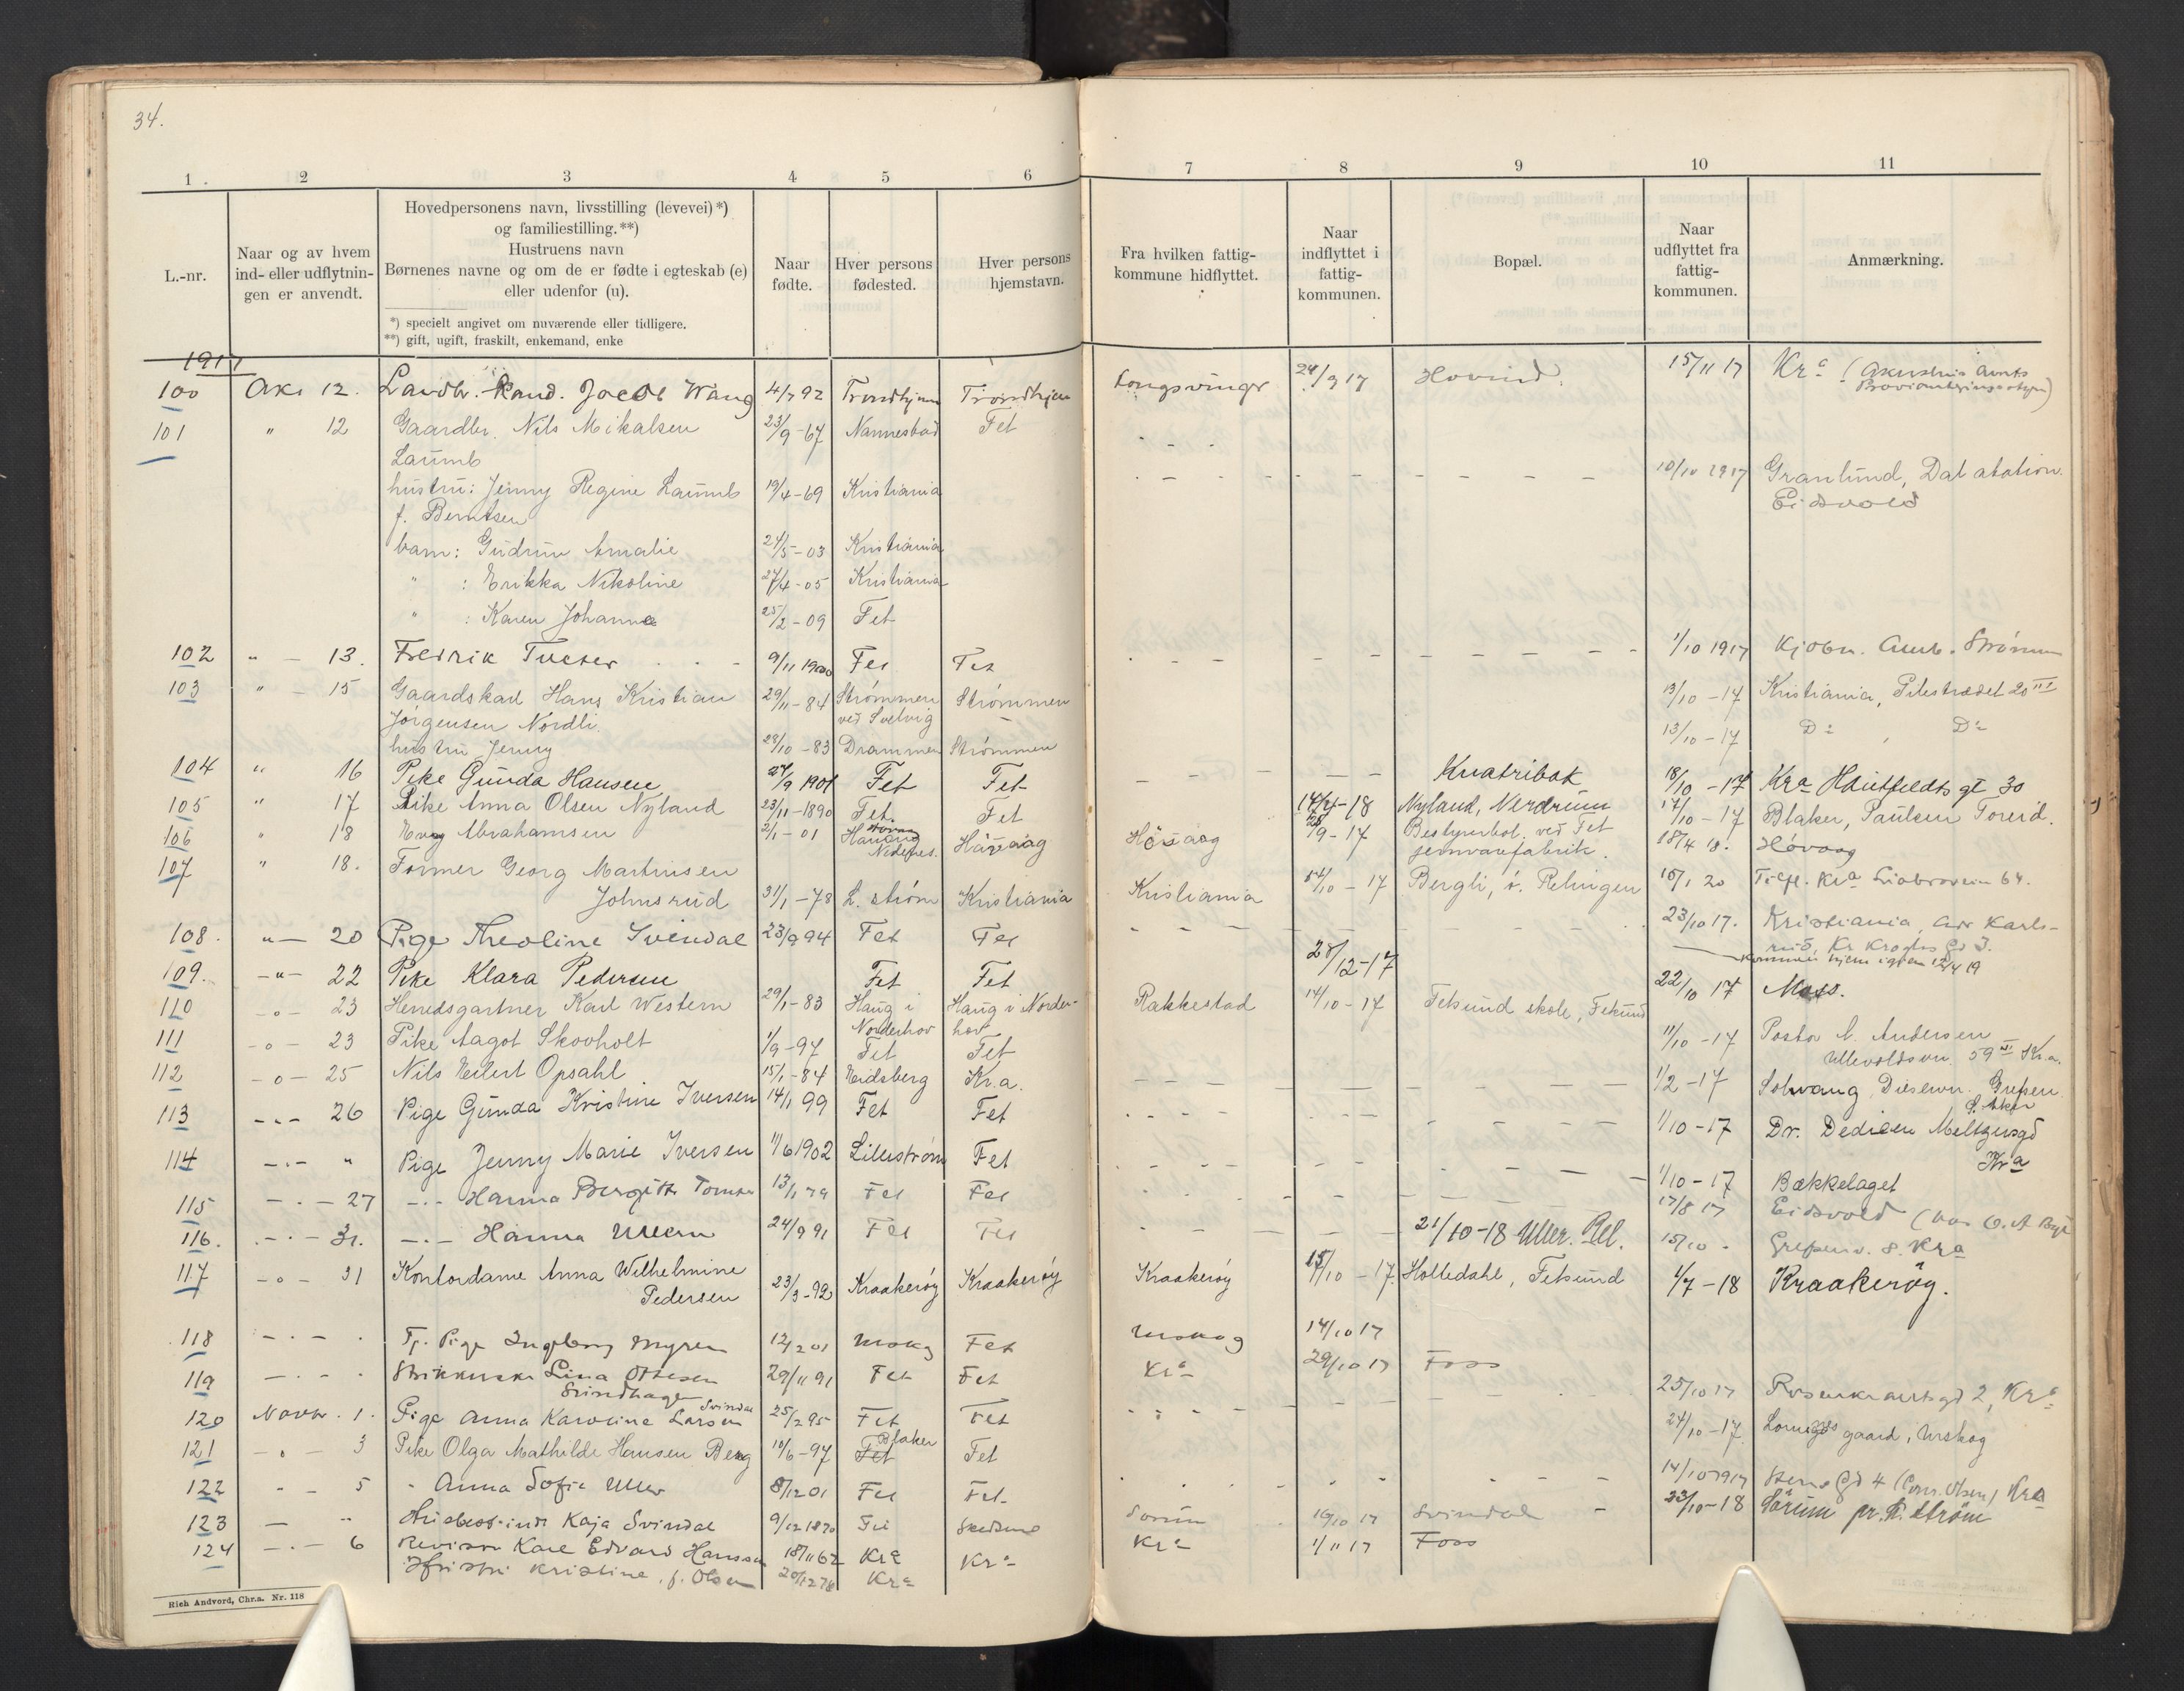 34.
1. 2 3 4 5 6 7 8 9 10 11
L.-nr.
Naar og av hvem
ind- eller udflytnin-
gen er anvendt.
Hovedpersonens navn, livsstilling (levevei) *)
og familiestilling. **)
Hustruens navn
Børnenes navne og om de er fødte i egteskab (e)
eller udenfor (u).
*) specielt angivet om nuværende eller tidligere.
**) gift, ugift, fraskilt, enkemand, enke
Naar
fødte.
Hver persons
fødested.
Hver persons
hjemstavn.
Fra hvilken fattig-
kommune hidflyttet.
Naar
indflyttet i
fattig-
kommunen.
Bopæl.
Naar
udflyttet fra
fattig-
kommunen.
Anmærkning.
1917
100 Okt 12. Landbr. Kand. Jacob Wang 4/7 92 Trondhjem Trondhjem Kongsvinger 24/9 17 Hovind. 15/11 17 Kra (Akershus Amts
Provianteringsstyre)
101 " 12 Gaardbr. Nils Mikalsen 23/9-67 Nannestad Fet - - -
Laumb
hustru: Jenny Regine Laumb 19/4-69 Kristiania - - - - - - 10/10 1917 Granlund, Dal station.
f. Berntsen Eidsvold
barn: Gudrun Amalie 24/5-03 Kristiania
" : Erikka Nikoline 27/4-05 Kristiania
" : Karen Johanne 25/2-09 Fet
102 " - 13. Fredrik Tveter 9/11 1900 Fet Fet - - - 1/10 1917 Kjøbn. Amb. Strømm
103 " - 15 Gaardskarl Hans Kristian 29/11-84 Strømmen Strømmen 13/10-17 Kristiania, Pilestrædet 20 III
Jørgensen Nordli ved Svelvig
hustru Jenny 28/10-83 Drammen Strømmen 13/10-17 Do , Do
104 " 16 Pike Gunda Hansen 27/9 1901 Fet Fet - - - Kvatribak 18/10-17 Kra Huitfeldts gt 30
105 " 17 Pike Anna Olsen Nyland 23/11-1890 Fet. Fet 14/4-18 Nyland, Nerdrum 17/10-17 Blaker, Paulsen Toreid.
106 " 18 Evag Abrahamsen 2/1-01 Høvaag Høvaag 28/9-17 Bestyrerbol. ved Fet 18/4 18. Høvaag
Nedenes. jernvarefabrik.
107 " 18. Former Georg Martinsen
Johnsrud 31/1-78 L. strøm Kristiania Kristiania 14/10-17 Bergli, v. Relingen 10/1 20 Tilfl. Kra Liabroveien 64.
108. " - 20 Pige Theoline Svendal 23/9 94 Fet Fet - - - 23/10 17. Kristiania, adr Karls-
rud, Kr Kroghs Gd 3.
kommen hjem igjen 12/4 19
109. - " - 22 Pike Klara Pedersen Fet Fet 28/12-17 22/10 17 Moss.
110 - o - 23 Herredsgartner Karl Western 29/1-83 Haug i Haug i Norder- Rakkestad 14/10-17 Fetsund skole, Fetsund
Norderhov hov
111 - o - 23 Pike Aagot Skovholt 1/9-97 Fet Fet 11/10-17 Pastor N. Andersen
Ullevoldsvn. 59 III Kr.a.
112 - o - 25 Nils Eilert Opsahl 15/1-84 Eidsberg Kr.a. - - - 1/2-17 Solvang, Grefsen
Ø. Aker
113 - . - 26 Pige Gunda Kristine Iversen 14/1 99 Fet Fet - - - 1/10-17 Dr. Dedicen Meltzersgd
Kra
114 - . - " Pige Jenny Marie Iversen 11/6 1902 Lillestrøm Fet - - - 1/10-17 Bækkelaget
115 - . - 27 - . - Hanna Bergitte Tomter 13/1 79 Fet Fet - - - 17/8 17 Eidsvold
116. - . - 31. - . - Hanna Ullern 24/9 91 Fet Fet - - - 21/10-18 Uller. Rel. 15/10 - Grefsenv. 8. Kra
117 - o - 31 Kontordame Anna Wilhelmine
Pedersen 23/3-92 Kraakerøy Kraakerøy Kraakerøy 15/10-17 Holtedahl, Fetsund 1/7-18 Kraakerøy.
118 - . - . Tj. Pige Ingeborg Myren 12/2 01 Urskog Fet Urskog 14/10 17
119 - . - . Strikkerske Lina Ottesen 29/11 91 Fet Fet Kra 29/10 17 Foss
Svindhagen
120 Novbr. 1. Pige Anna Karoline Larsen Svindal 25/2 95 Fet Fet - - - 25/10 17 Rosenkrantzgd 2, Kra
121 - o - 3 Pike Olga Mathilde Hansen Berg 10/6-97 Fet Blaker Fet 24/10-17. gaard, Urskog
122 - - 5 - Anna Sofie Uller 8/12 01 Fet Fet. - - - 14/10 1917 Gd 4 Kra
123 - " Kaja Svindal 9/12 1870 Fet Skedsmo Sørum 16/10 17 Svindal - 23/10-18 Sørum pr. L. strøm
124 - . - 6 Revisor Karl Edvard Hanssen 18/11 62 Kra Kra Kra 1/11 17 Foss
Hustru Kristine, f. Olsen 20/12 78 Kra
Rich Andvord, Chr.a. Nr. 118